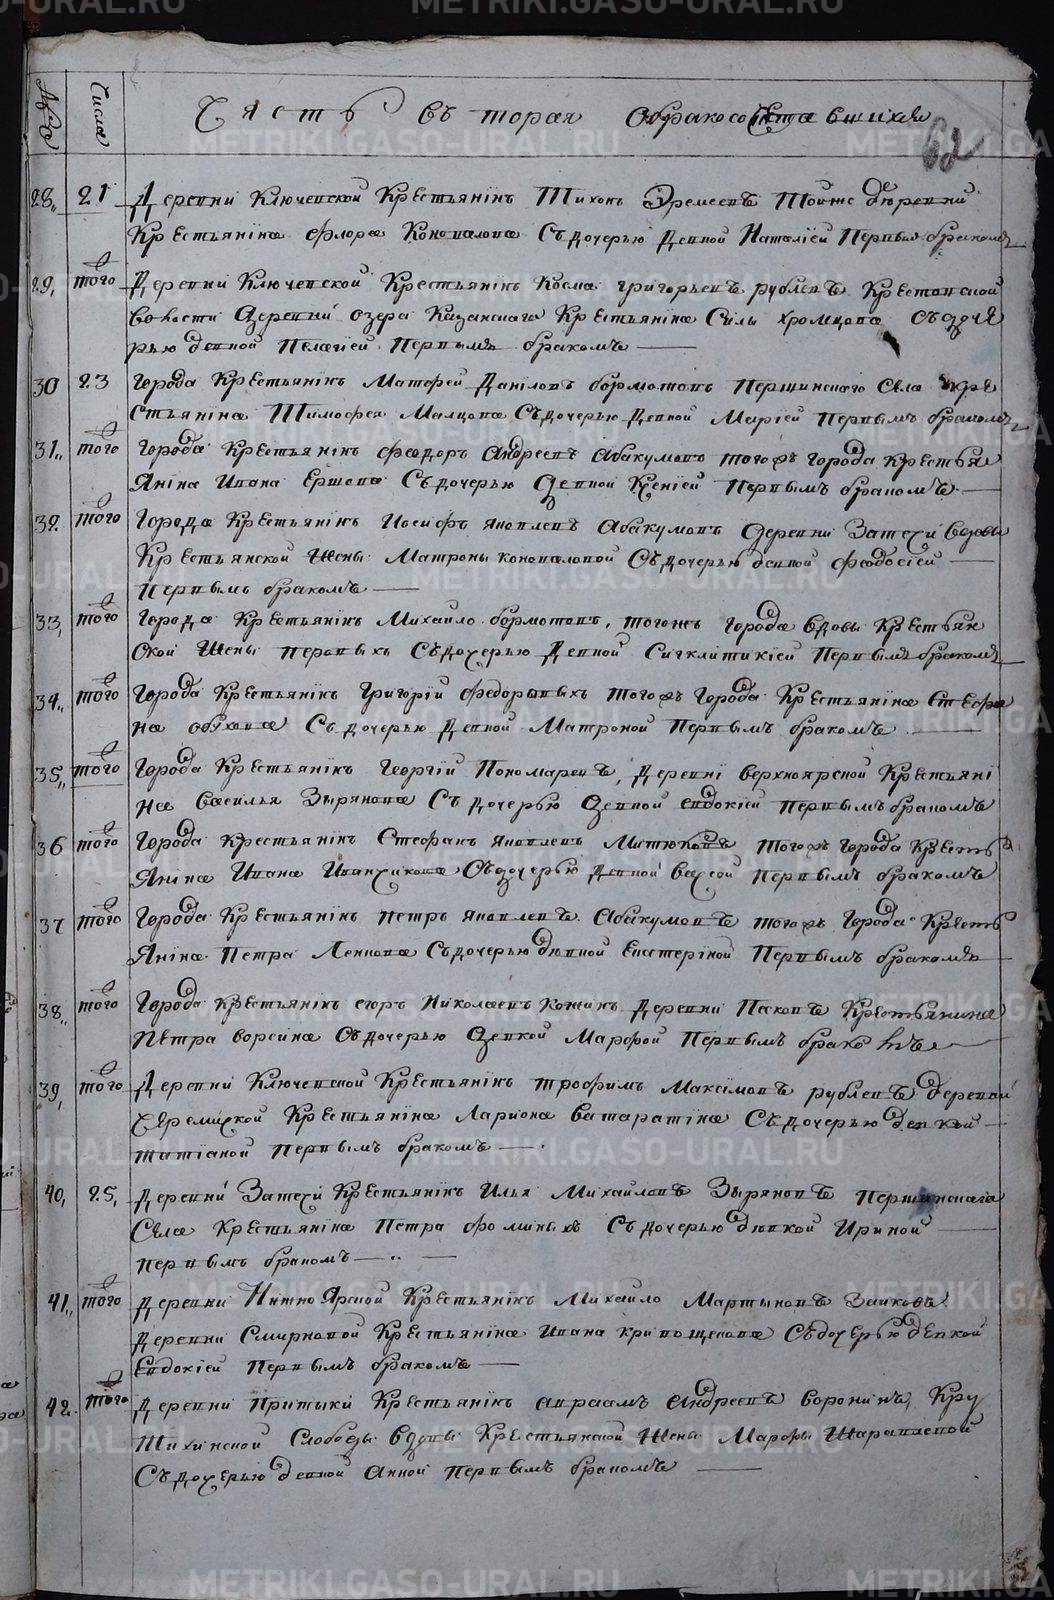 METRIKI.GASO-URAL.RU
№ Числа
Часть вторая обракосочетавшихся
62
28, 21 Деревни Ключевской Крестьянинъ Тихонъ Еремеевъ Тойже деревни
Крестьянина Флора Коновалова Съ дочерью девкой Наталiей Первым бракомъ
29, того Деревни Ключевской Крестьянинъ Косма григорьевъ рублевъ Крестовской
волости Деревни озера Казанскаго Крестьянина Силы хромцова Съ доче
рью девкой Пелагiей Первымъ бракомъ
30 23 Города Крестьянинъ Матфей Данiловъ бормотовъ Першинскаго Села Кре
стьянина Тимофея Малцова Съ дочерью девкой Марiей Первымъ бракомъ
31, того Города Крестьянiнъ Феодоръ Андреевъ Абакумовъ тогожъ Города Крестья
янiна Ивана Ершова Съ дочерью девкой Ксенiей Первымъ бракомъ
32 того Города Крестьянiнъ Иосифъ Яковлевъ Абакумовъ деревни Затечи вдовы
Крестьянской Жены Матроны коноваловой Съ дочерью девкой Феодосiей
Первымъ бракомъ
33, того Города Крестьянiнъ Михайло бормотовъ, тогожъ Города вдовы Крестьян
ской Жены Съ дочерью девкой Сигклитикiей Первымъ бракомъ
34, того Города Крестьянiнъ Григорiй Федоровыхъ тогожъ Города Крестьянина Стефа
на обухова Съ дочерью девкой Матроной Первымъ бракомъ
35, того Города Крестьянiнъ Георгiй Пономаревъ, деревнi верхноярской Крестьянi
на Василья Зырянова Съ дочерью девкой евдокiей первымъ бракомъ
36 того Города Крестьянiнъ Стефанъ Яковлевъ Митюковъ тогожъ города Кресть
янiна Ивана Иванчикова Съ дочерью девкой Первымъ бракомъ
37 того Города Крестьянiнъ петръ Яковлевъ Абакумовъ тогожъ Города Кресть
янiна Петра Ленкова Съ дочерью девкой Екатерiной Первымъ бракомъ
38, того Города крестьянiнъ егоръ Николаевъ Кожинъ деревни Крестьянина
Петра ворсина Съ дочерью девкой Марфой Первымъ бракомъ
39, того Деревни Ключевской Крестьянiнъ трофимъ Максiмовъ рублевъ деревни
Черемiской Крестьянiна Лариона ватаратiна Съ дочерью девкой
татiаной первымъ бракомъ
40, 25, деревни Затечи Крестьянiнъ Илья Михайловъ Зыряновъ Першинскаго
Села Крестьянiна Петра фоминыхъ Съ дочерью девкой Ириной
первымъ бракомъ
41, того деревни Нижно Ярской Крестьянiнъ Михайло Мартыновъ Заиковъ
деревни Смирновой Крестьянiна Ивана кривощекова Съ дочерью девкой
Евдокiей Первымъ бракомъ
42. того деревни Притыки Крестьянiнъ авраамъ Андреевъ воронинъ, Кру
тихинской Слободы вдовы Крестьянской Жены Марфы Шараповой
Съ дочерью девкой Анной первымъ бракомъ